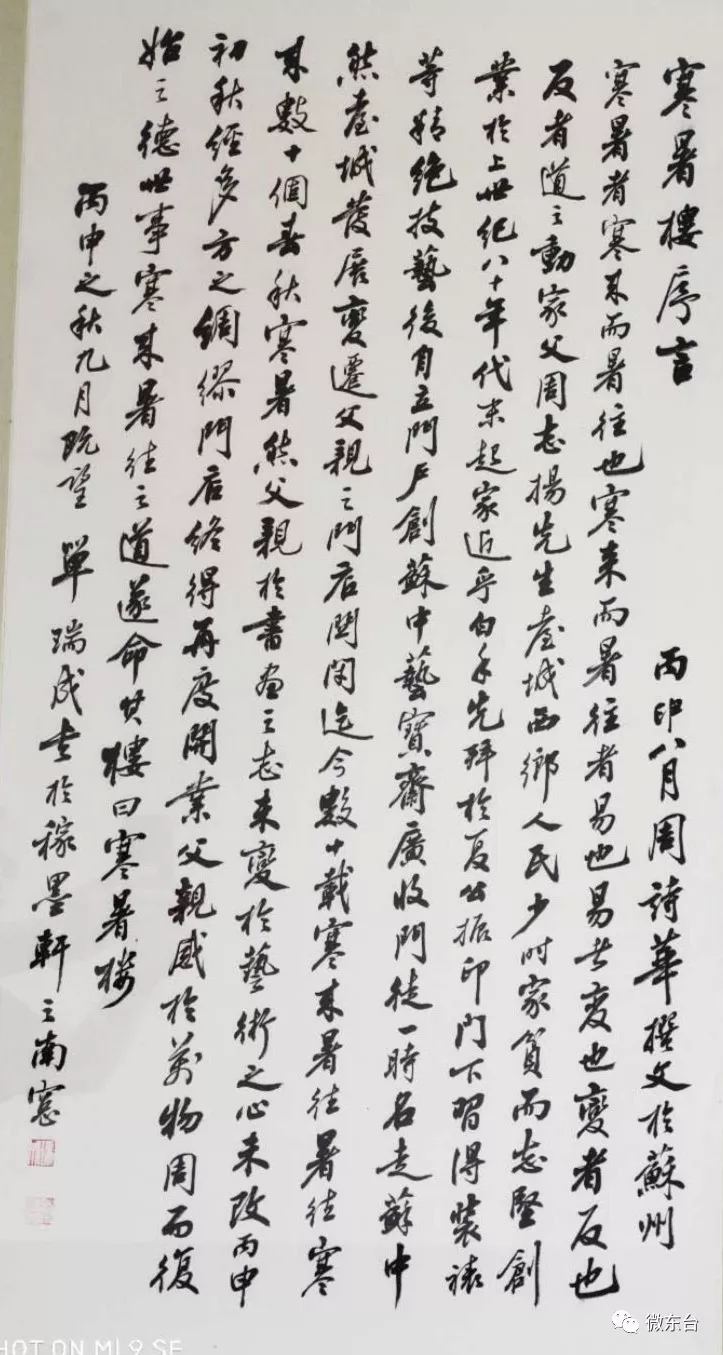 寒暑樓序言
丙申八月周詩華撰文於蘇州
寒暑者寒來而暑往也寒来而暑往者易也易者变也變者反也
反者道之動家父周志揚先生臺城西鄉人民少时家貧而志堅創
業於上世纪八十年代末起家近乎白手先拜於夏公振印門下習得装裱
等精绝技藝後自立門户創蘇中藝寶齋廣收門徒一時名走蘇中
然臺城發展變遷父親之門店關閉迄今數十載寒來暑往暑往寒
來數十個春秋寒暑然父親於書画之志未變於藝術之心未改丙申
初秋经多方之綢繆門店终得再度開業父親感於萬物周而復
始之德世事寒來暑往之道遂命其樓曰寒暑楼
丙申之秋九月既望 單瑞成書於稼墨軒之南窓
微东台
HOT ON MI 9 SE